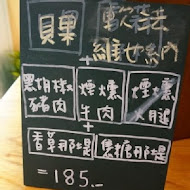 貝果 軟法
維也納
+
黑胡椒豬肉 煙燻牛肉 煙燻火腿
+
香草那堤 焦糖那堤
=185.-